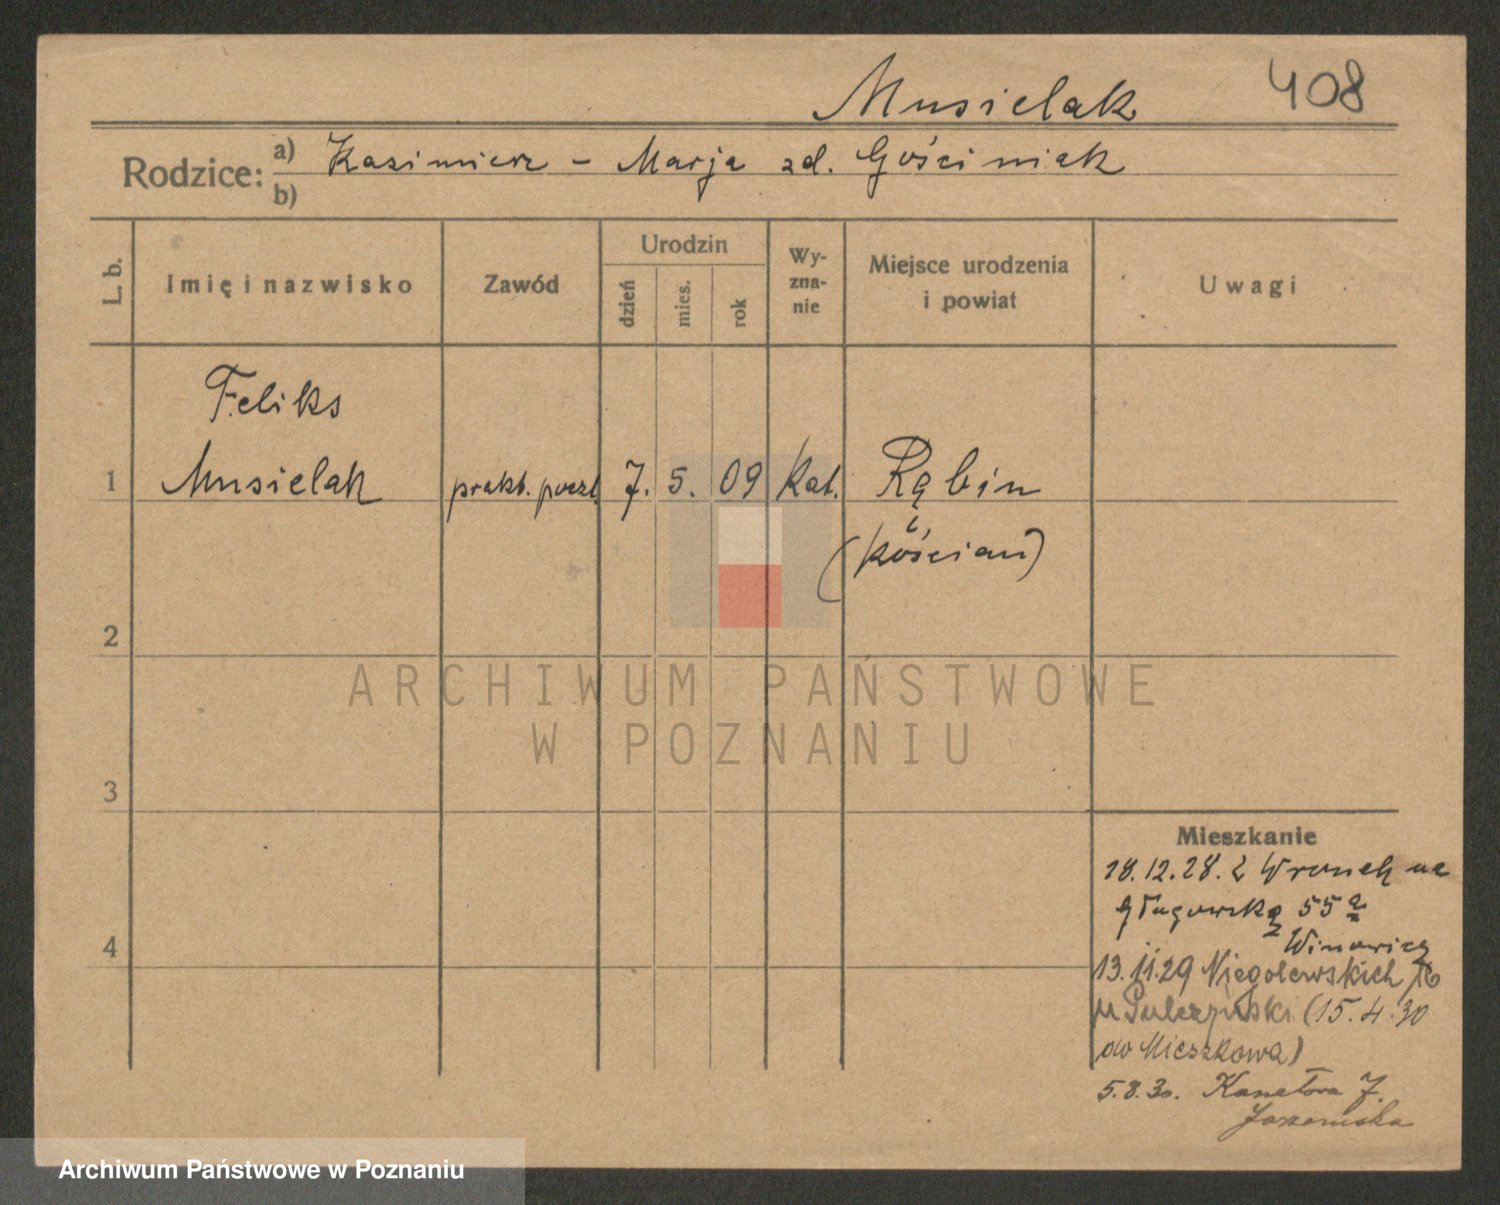 Musielak 408
Rodzice: a) Kazimierz – Marja zd. Gościniak
b)
L. b. Imię i nazwisko Zawód Urodzin dzień mies. rok Wy-zna-nie Miejsce urodzenia i powiat Uwagi
Feliks
1 Musielak prakt. poczt. 7. 5. 09 Kat. Rąbin
(Kościan)
2
ARCHIWUM PAŃSTWOWE
W POZNANIU
3
Mieszkanie
18.12.28. z Wronek na
55a
4
13.11.29 Niegolewskich
(15.4.30
do Mieszkowa)
5.8.30. Kanałowa 7.
Archiwum Państwowe w Poznaniu